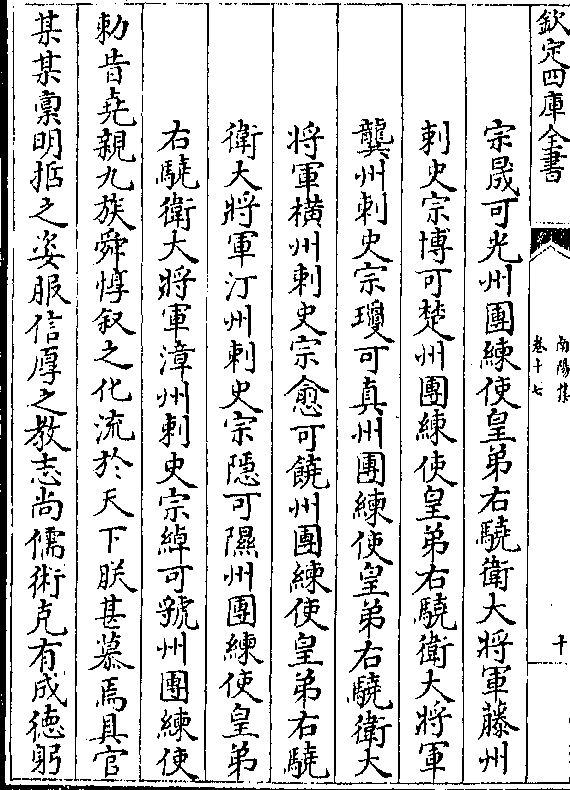 欽定四庫全書
南陽集
卷十七
十
宗晟可光州團練使皇弟右驍衛大將軍藤州
刺史宗博可楚州團練使皇弟右驍衛大將軍
龔州刺史宗瓊可真州團練使皇弟右驍衛大
將軍橫州刺史宗愈可饒州團練使皇弟右驍
衛大將軍汀州刺史宗隱可隰州團練使皇弟
右驍衛大將軍漳州刺史宗綽可虢州團練使
勅昔堯親九族舜惇叙之化流於天下朕甚慕焉具官
某某禀明括之姿服信厚之教志尚儒術克有成德躬